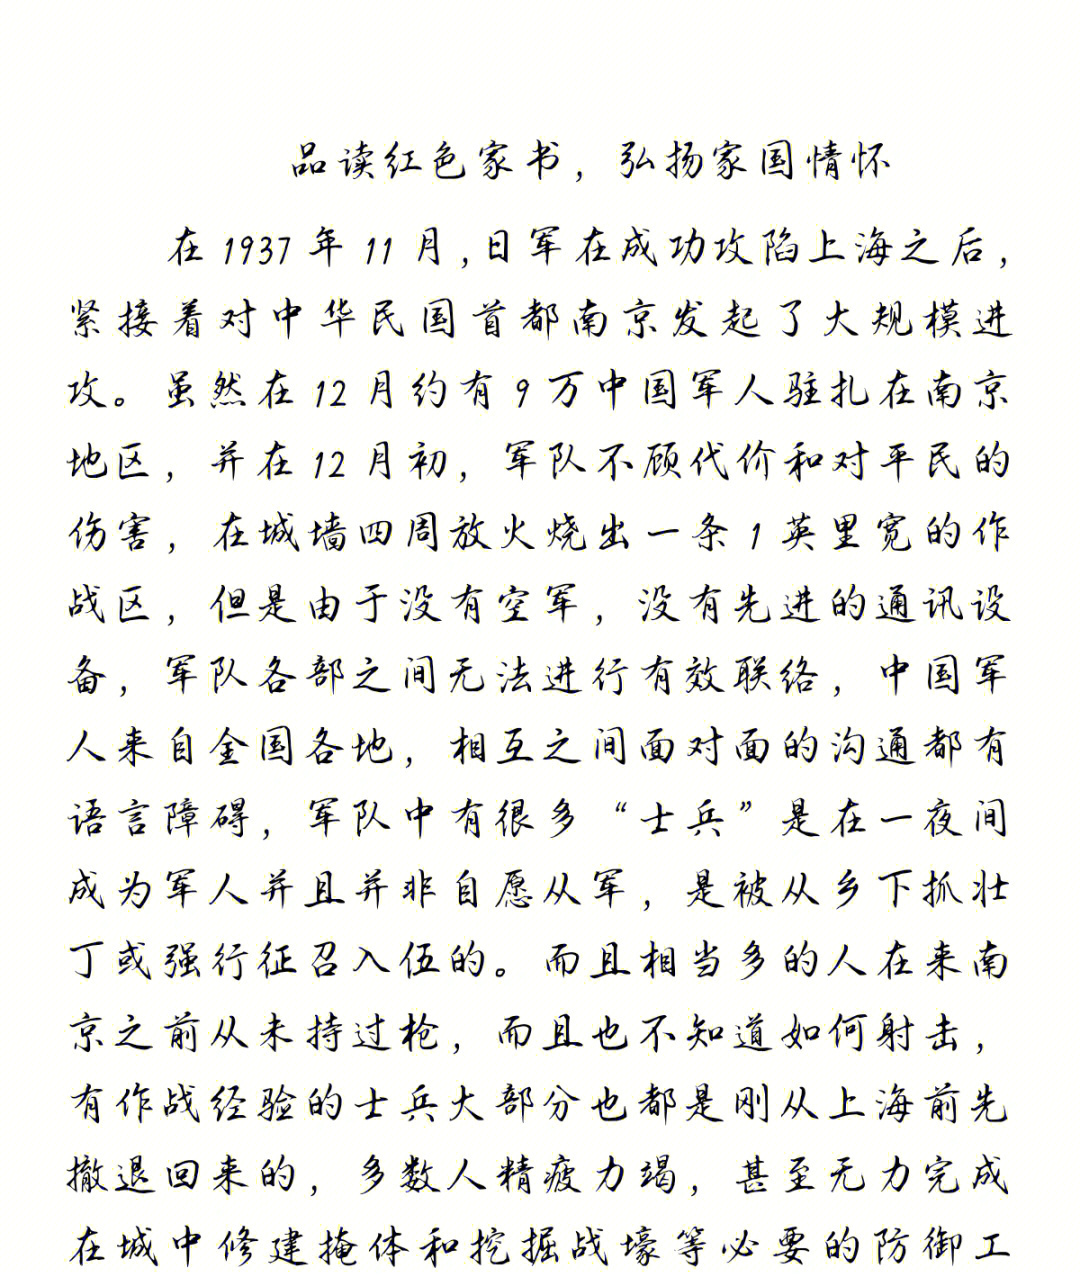 品读红色家书，弘扬家国情怀
在1937年11月,日军在成功攻陷上海之后,
紧接着对中华民国首都南京发起了大规模进
攻。虽然在12月约有9万中国军人驻扎在南京
地区，并在12月初，军队不顾代价和对平民的
伤害，在城墙四周放火烧出一条1英里宽的作
战区，但是由于没有空军，没有先进的通讯设
备，军队各部之间无法进行有效联络，中国军
人来自全国各地，相互之间面对面的沟通都有
语言障碍，军队中有很多“士兵”是在一夜间
成为军人并且并非自愿从军，是被从乡下抓壮
丁或强行征召入伍的。而且相当多的人在来南
京之前从未持过枪，而且也不知道如何射击，
有作战经验的士兵大部分也都是刚从上海前先
撤退回来的，多数人精疲力竭，甚至无力完成
在城中修建掩体和挖掘战壕等必要的防御工